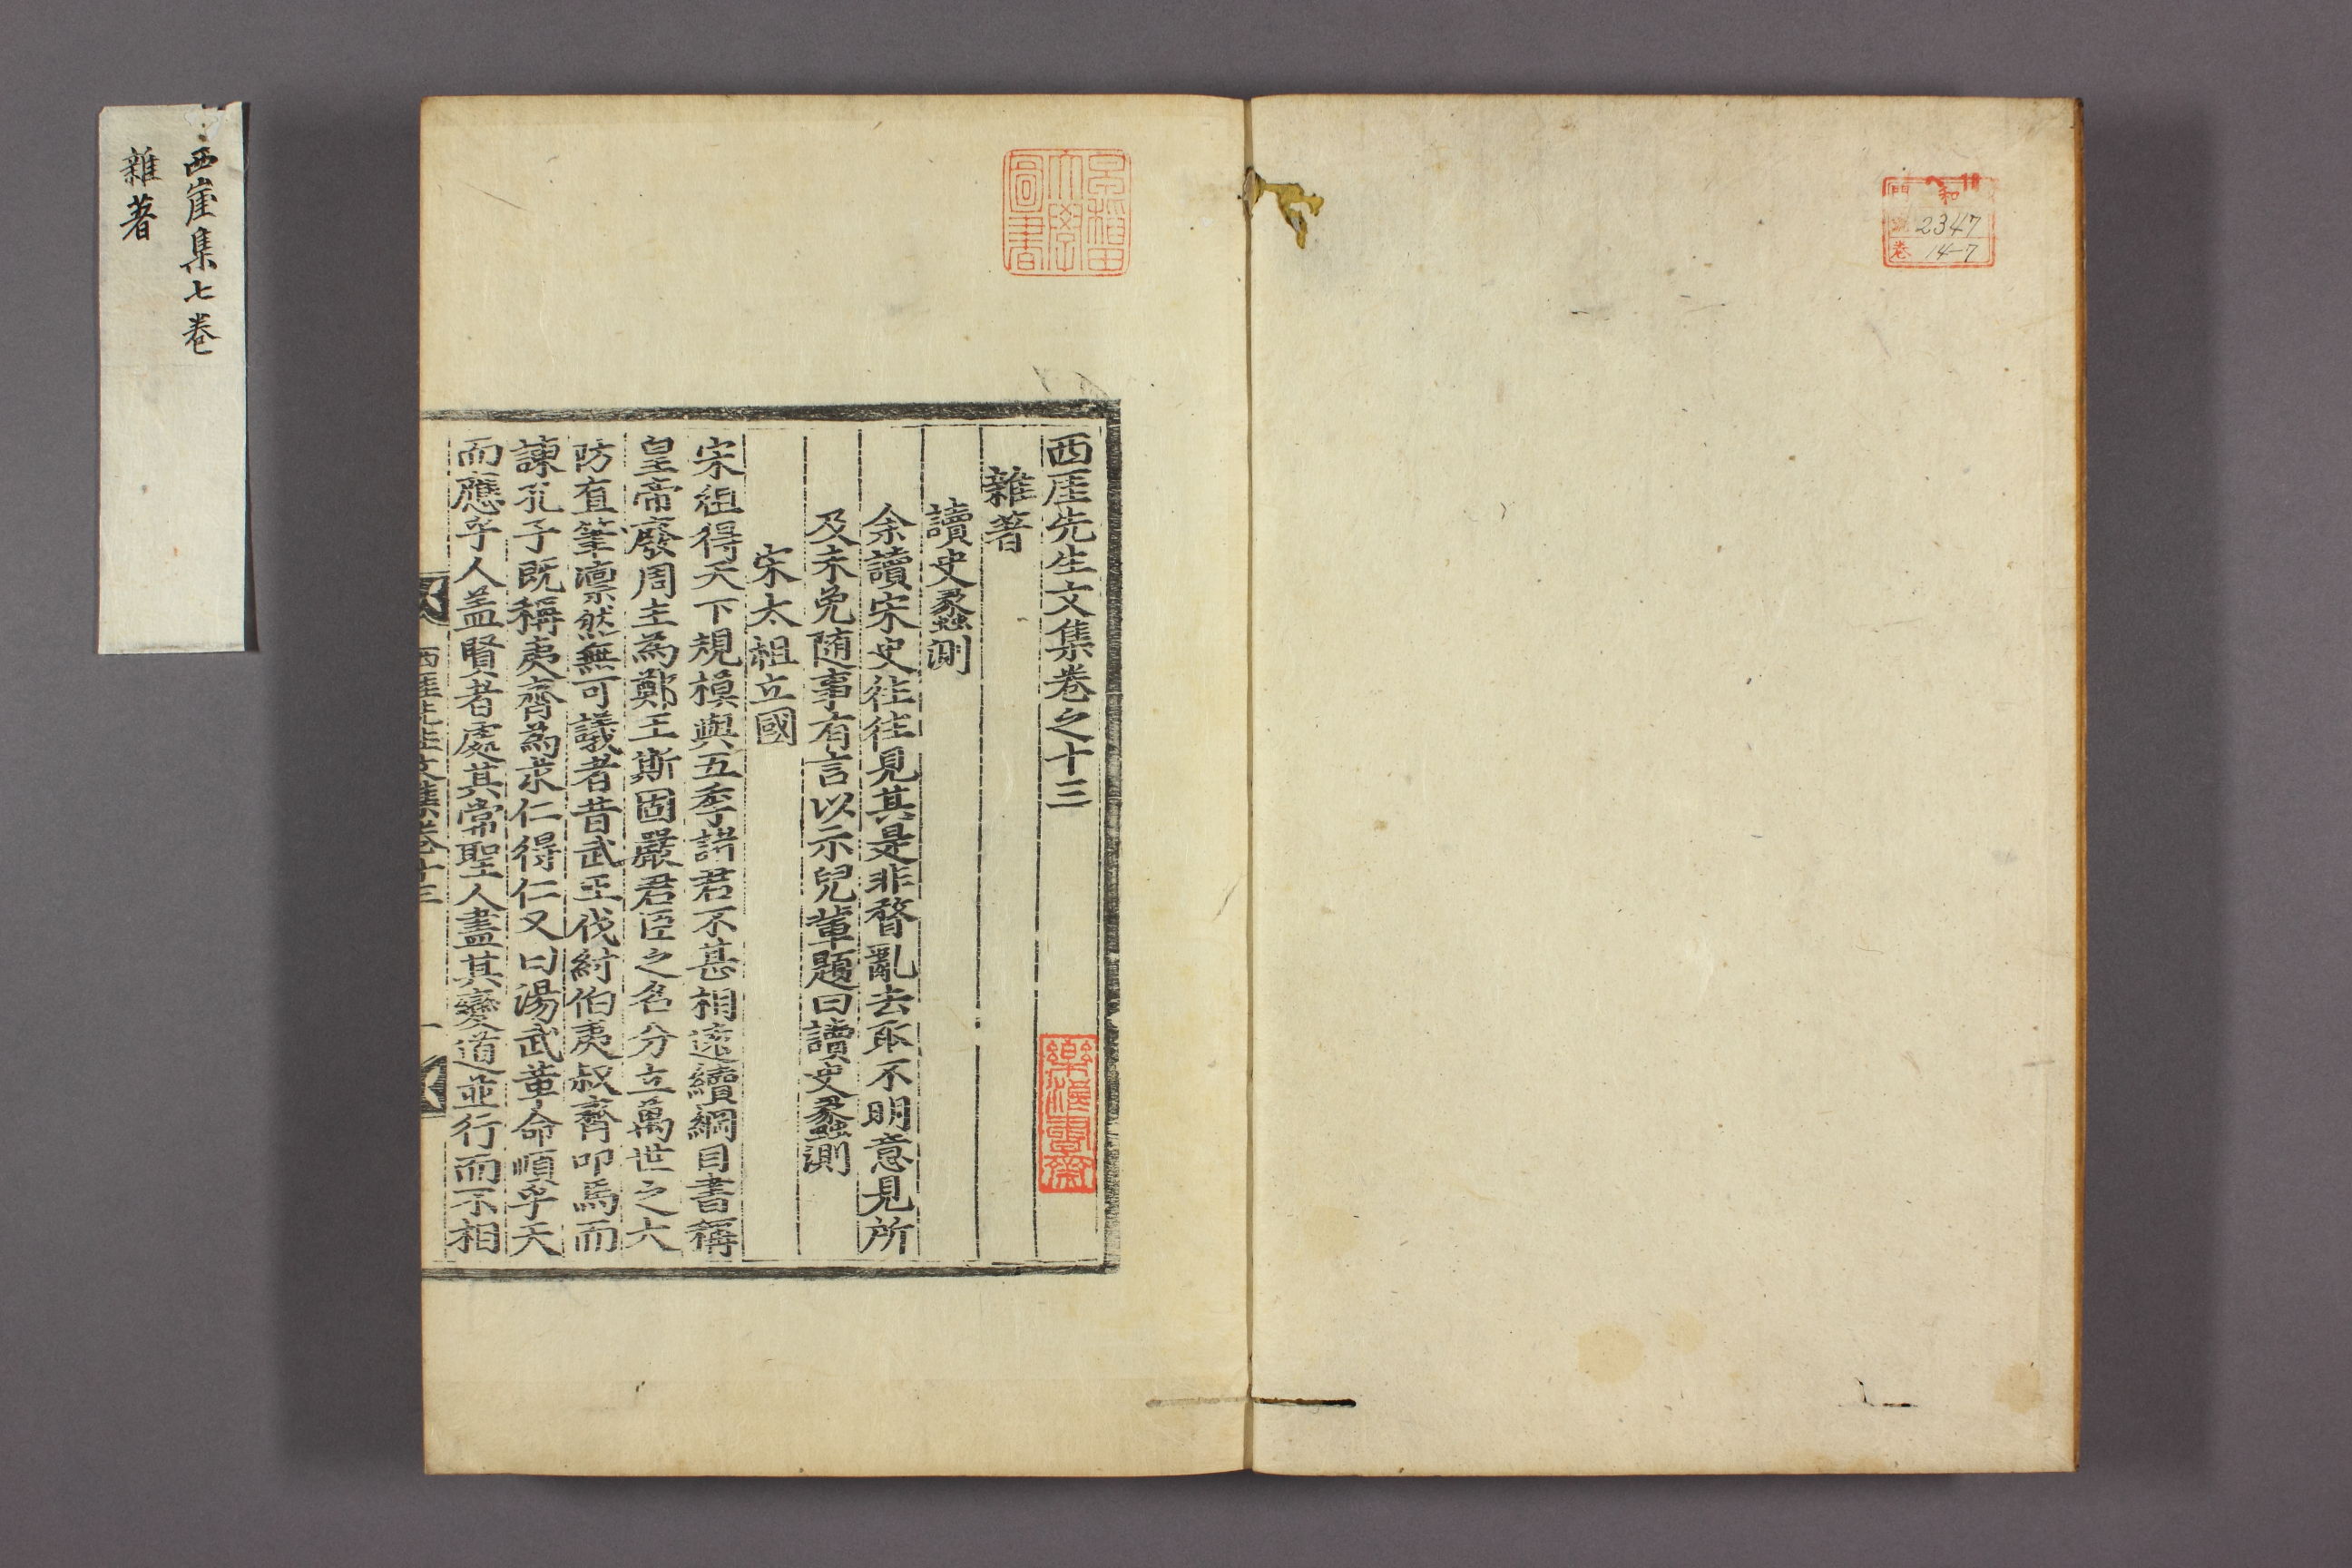 和
門
2347
卷 14-7
早稲田
大學
圖書
西厓先生文集卷之十三
雜著
讀史蠡測
余讀宋史往往見其是非瞀亂去取不明意見所
及未免随事有言以示兒輩題曰讀史蠡測
宋太祖立國
宋祖得天下規模與五季諸君不甚相遠續綱目書稱
皇帝廢周主為鄭王斯固嚴君臣之名分立萬世之大
防直筆凛然無可議者昔武王伐紂伯夷叔齊叩馬而
諫孔子既稱夷齊為求仁得仁又曰湯武革命順乎天
而應乎人盖賢者處其常聖人盡其變道並行而不相
西厓先生文集卷十三 一
西崖集七卷
雜著